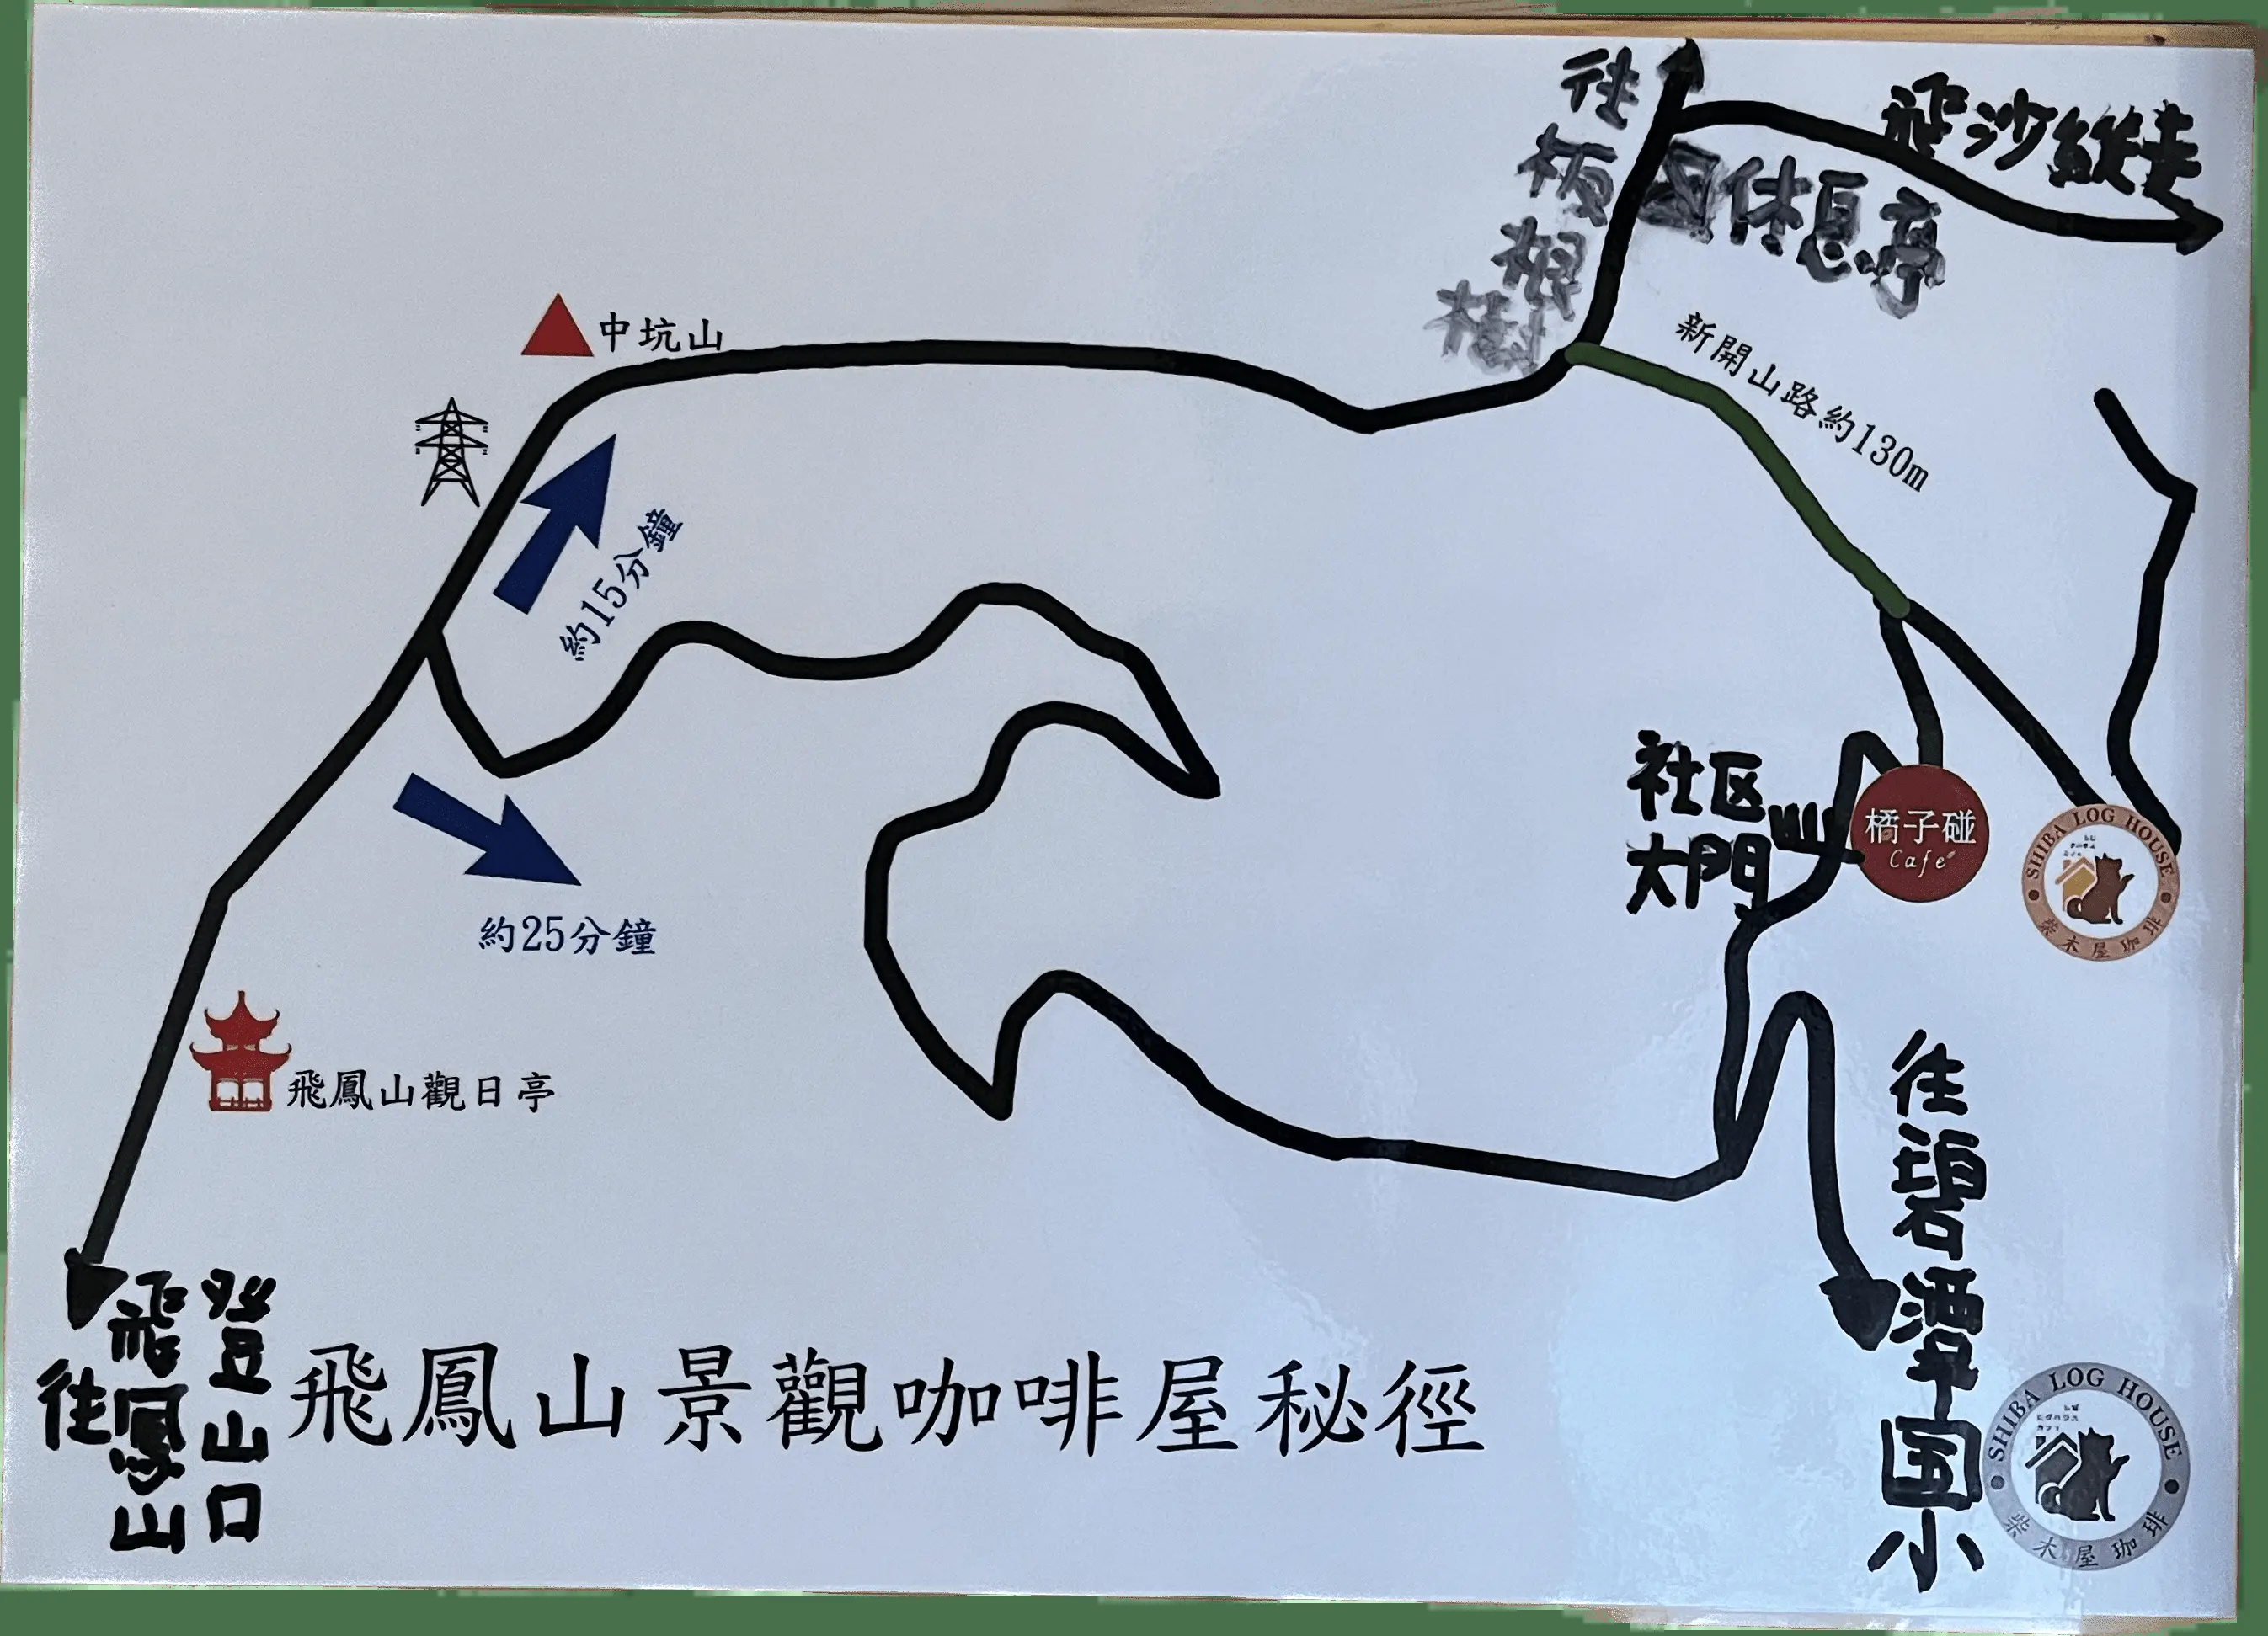 往
板根樹
因休息亭
飛沙縱走
新開山路約130m
中坑山
約15分鐘
約25分鐘
社区
大門
橘子碰
Cafe
SHIBA LOG HOUSE
柴木屋珈琲
飛鳳山觀日亭
往碧潭国小
往飛鳳山
登山口
飛鳳山景觀咖啡屋秘徑
SHIBA LOG HOUSE
柴木屋珈琲